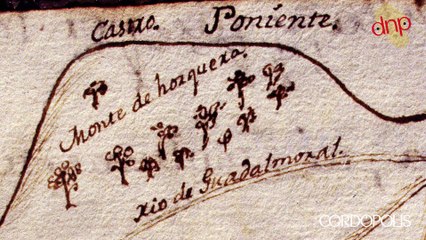 Castro. Poniente.
dnp
Monte de horquera.
rio de Guadalmoral.
CORDOPOLIS